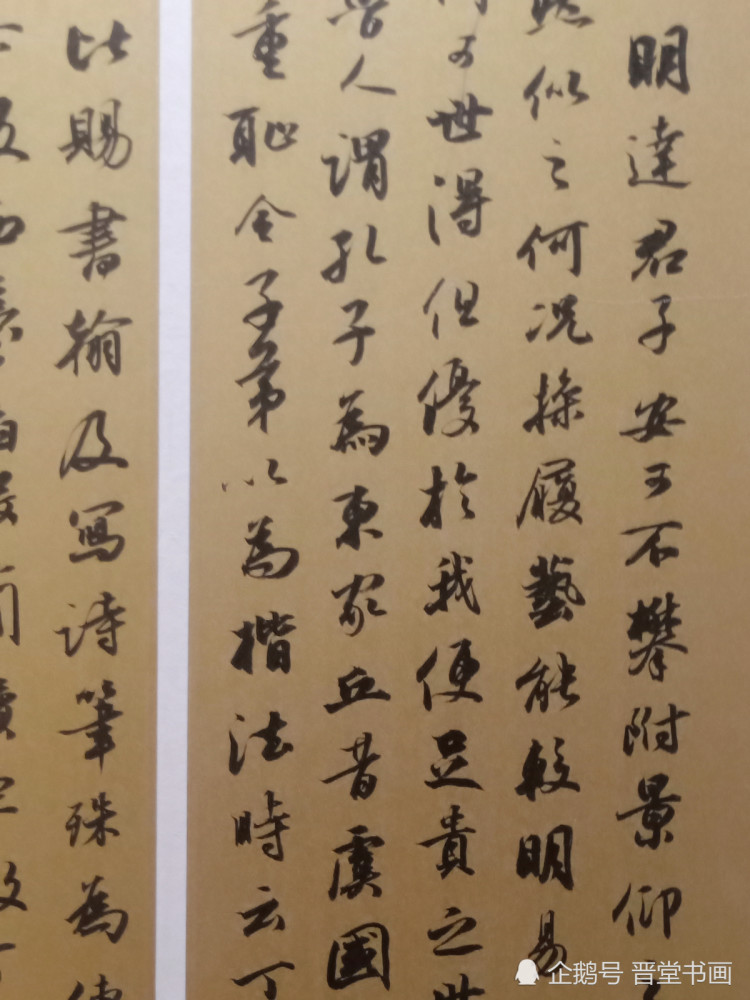 明達君子安可不攀附景仰
然似之何況操履藝能較明易
何可世得但優於我便足貴之世
魯人謂孔子為東家丘昔虞國
重耻令子弟以為楷法時云丁
比賜書翰及寫詩筆殊為
企鹅号 晋堂书画